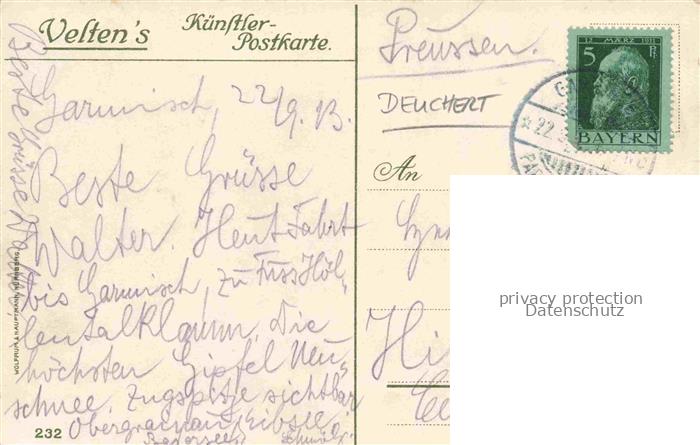 Velten's
Künstler-
Postkarte.
Preussen.
DEUCHERT
12 MÄRZ 1911
5 Pf.
BAYERN
An
Garmisch, 22/9. 13.
Beste Grüsse
Walter. Heut Fahrt
bis Garmisch, zu Fuss Höl-
lentalklamm. Die
höchsten Gipfel Neu-
schnee. Zugspitze sichtbar
Obergrainau, Eibsee,
Badersee,
Beste Grüsse
WOLFRUM & HAUPTMANN, NÜRNBERG
232
privacy protection
Datenschutz